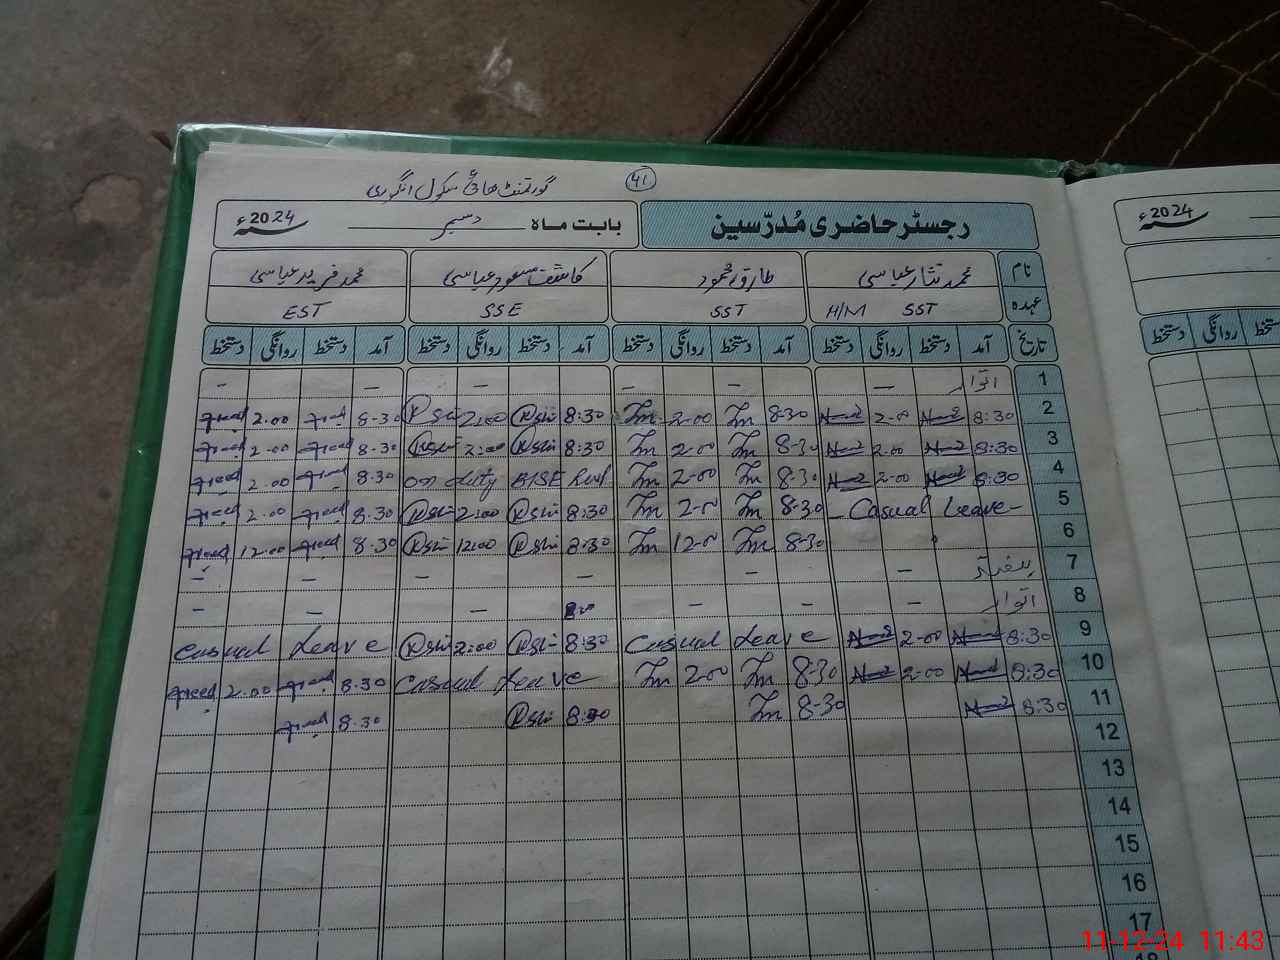 گورنمنٹ ہائی سکول انگوری
41
رجسٹر حاضری مُدرّسین
بابت ماہ دسمبر 2024ء
نام محمد نثار عباسی طارق محمود کاشف مسعود عباسی محمد فرید عباسی
عہدہ H/M SST SST SSE EST
تاریخ آمد دستخط روانگی دستخط آمد دستخط روانگی دستخط آمد دستخط روانگی دستخط آمد دستخط روانگی دستخط
1 اتوار - - - - - -
2 8:30 2-00 8-30 Tm 2-00 Tm 8:30 2:00 8-30 2.00
3 8:30 2-00 8-30 Tm 2-00 Tm 8:30 2:00 8.30 2.00
4 8:30 2-00 8-30 Tm 2-00 Tm on duty BISE 8.30 2.00
5 - Casual Leave - 8-30 Tm 2-00 Tm 8:30 2:00 8.30 2.00
6 8-30 Tm 12-00 Tm 8:30 12:00 8.30 12.00
7 - - - - - -
8 اتوار - - - - - -
9 8:30 2-00 Casual Leave 8:30 2:00 Casual Leave
10 8:30 2-00 8-30 Tm 2-00 Tm Casual Leave 8.30 2.00
11 8:30 8-30 Tm 8:30 8.30
12
13
14
15
16
17
18
2024ء
دستخط روانگی
11-12-24 11:43